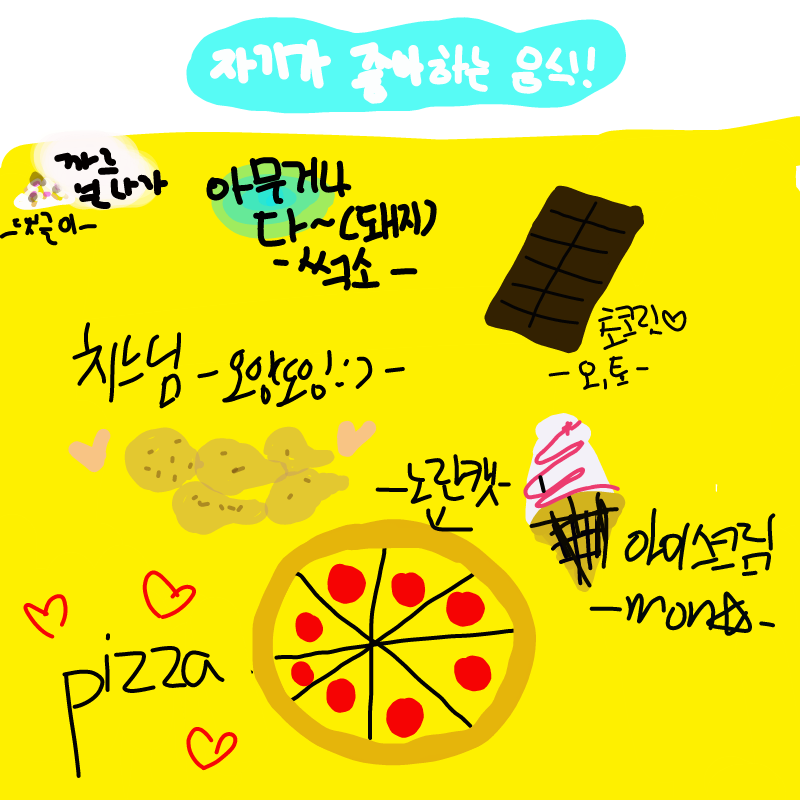 자기가 좋아하는 음식!!
까르
보나라
-댓글이-
아무거나
다~(돼지)
-쓱소-
초코릿♡
-오,토-
치느님 -오양또잉!:)-
-노란캣-
아이스크림
-mon☆-
pizza